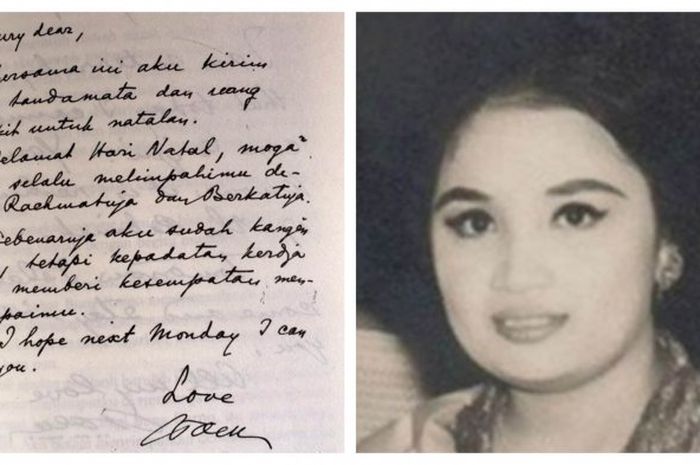 ury dear,
ersama ini aku kirim
tandamata dan uang
kit untuk natalan.
elamat Hari Natal, moga²
selalu melimpahimu de-
Rachmatnja dan Berkatnja.
ebenarnja aku sudah kangen
, tetapi kepadatan kerdja
memberi kesempatan men-
paimu.
I hope next Monday I can
you.
Love